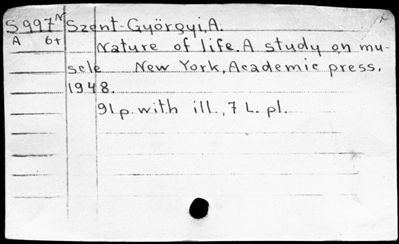 S997N Szent-Györgyi, A.
A 6+ Nature of life. A study on mu-
scle New York, Academic press,
1948.
91p. with ill., 7 L. pl.